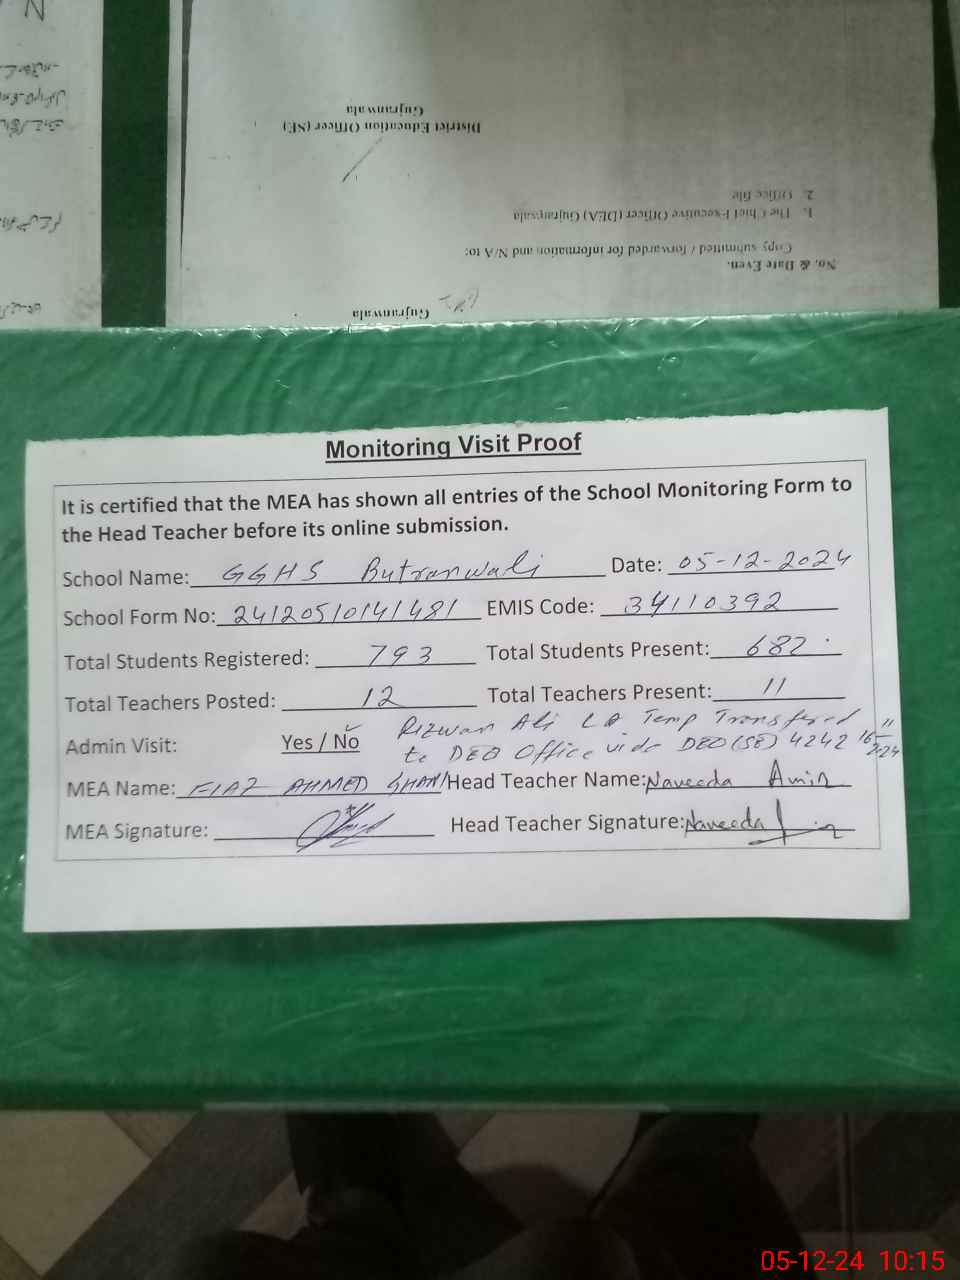 District Education Officer (SE)
Gujranwala
2. Office file
1. The Chief Executive Officer (DEA) Gujranwala
Copy submitted / forwarded for information and N/A to:
No. & Date Even.
Gujranwala
Monitoring Visit Proof
It is certified that the MEA has shown all entries of the School Monitoring Form to
the Head Teacher before its online submission.
School Name: GGHS Butranwali Date: 05-12-2024
School Form No: 24120510141481 EMIS Code: 34110392
Total Students Registered: 793 Total Students Present: 682
Total Teachers Posted: 12 Total Teachers Present: 11
Rizwan Ali LA Temp Transfered
Admin Visit: Yes / No to DEO Office vide DEO (SE) 4242
MEA Name: FIAZ AHMED GHANI Head Teacher Name: Naveeda Amin
MEA Signature: Head Teacher Signature: Naveeda Amin
05-12-24 10:15